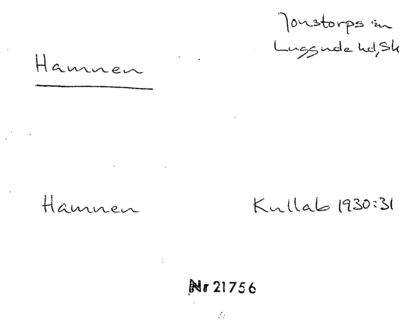 Jonstorps sn
Luggude hd, Sk
Hamnen
Hamnen
Kullab 1930:31
Nr 21756